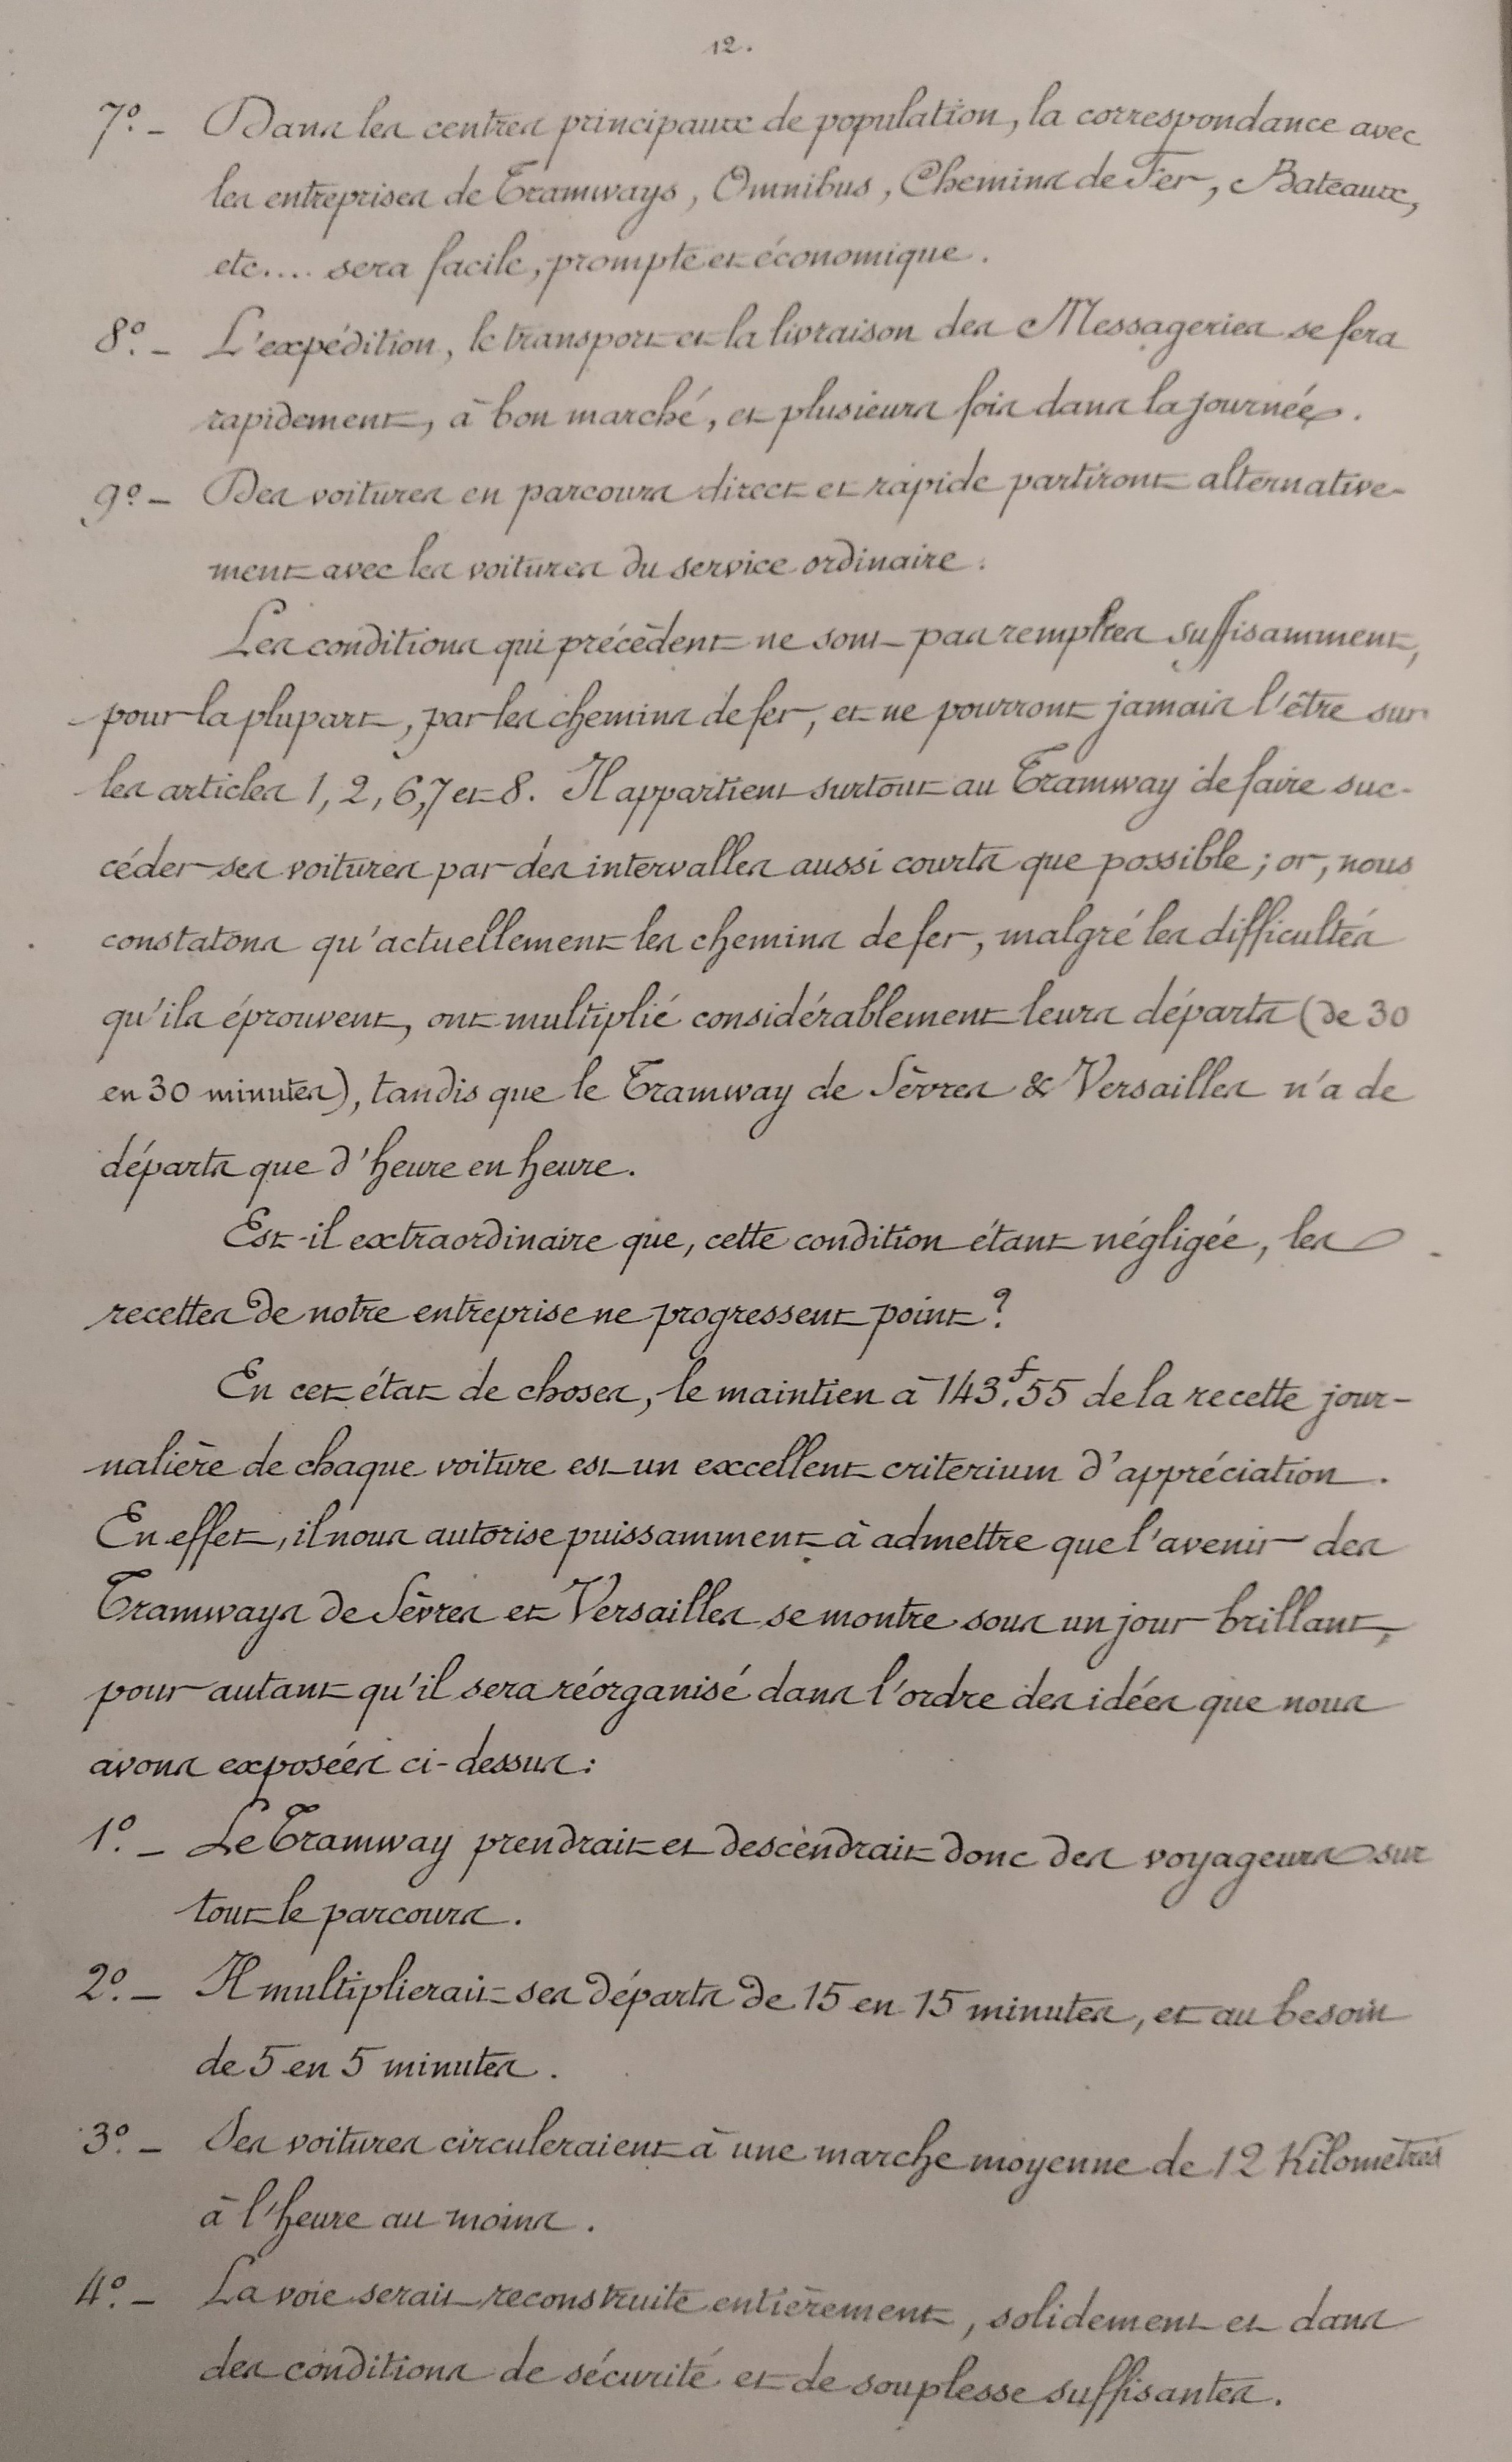 12.
7º.- Dans les centres principaux de population, la correspondance avec
les entreprises de Tramways, Omnibus, Chemins de Fer, Bateaux,
etc.... sera facile, prompte et économique.
8º.- L'expédition, le transport et la livraison des Messageries se fera
rapidement, à bon marché, et plusieurs fois dans la journée.
9º- Des voitures en parcours direct et rapide partiront alternative-
ment avec les voitures du service ordinaire.
Les conditions qui précèdent ne sont pas remplies suffisamment,
pour la plupart, par les chemins de fer, et ne pourront jamais l'être sur
les articles 1, 2, 6, 7 et 8. Il appartient surtout au Tramway de faire suc-
céder ses voitures par des intervalles aussi courts que possible; or, nous
constatons qu'actuellement les chemins de fer, malgré les difficultés
qu'ils éprouvent, ont multiplié considérablement leurs départs (de 30
en 30 minutes), tandis que le Tramway de Sèvres & Versailles n'a de
départs que d'heure en heure.
Est-il extraordinaire que, cette condition étant négligée, les
recettes de notre entreprise ne progressent point?
En cet état de choses, le maintien à 143.f55 de la recette jour-
nalière de chaque voiture est un excellent criterium d'appréciation.
En effet, il nous autorise puissamment à admettre que l'avenir des
Tramways de Sèvres et Versailles se montre sous un jour brillant,
pour autant qu'il sera réorganisé dans l'ordre des idées que nous
avons exposées ci-dessus:
1º.- Le Tramway prendrait et descendrait donc des voyageurs sur
tout le parcours.
2º.- Il multiplierait ses départs de 15 en 15 minutes, et au besoin
de 5 en 5 minutes.
3º.- Ses voitures circuleraient à une marche moyenne de 12 Kilomètres
à l'heure au moins.
4º.- La voie serait reconstruite entièrement, solidement et dans
des conditions de sécurité et de souplesse suffisantes.